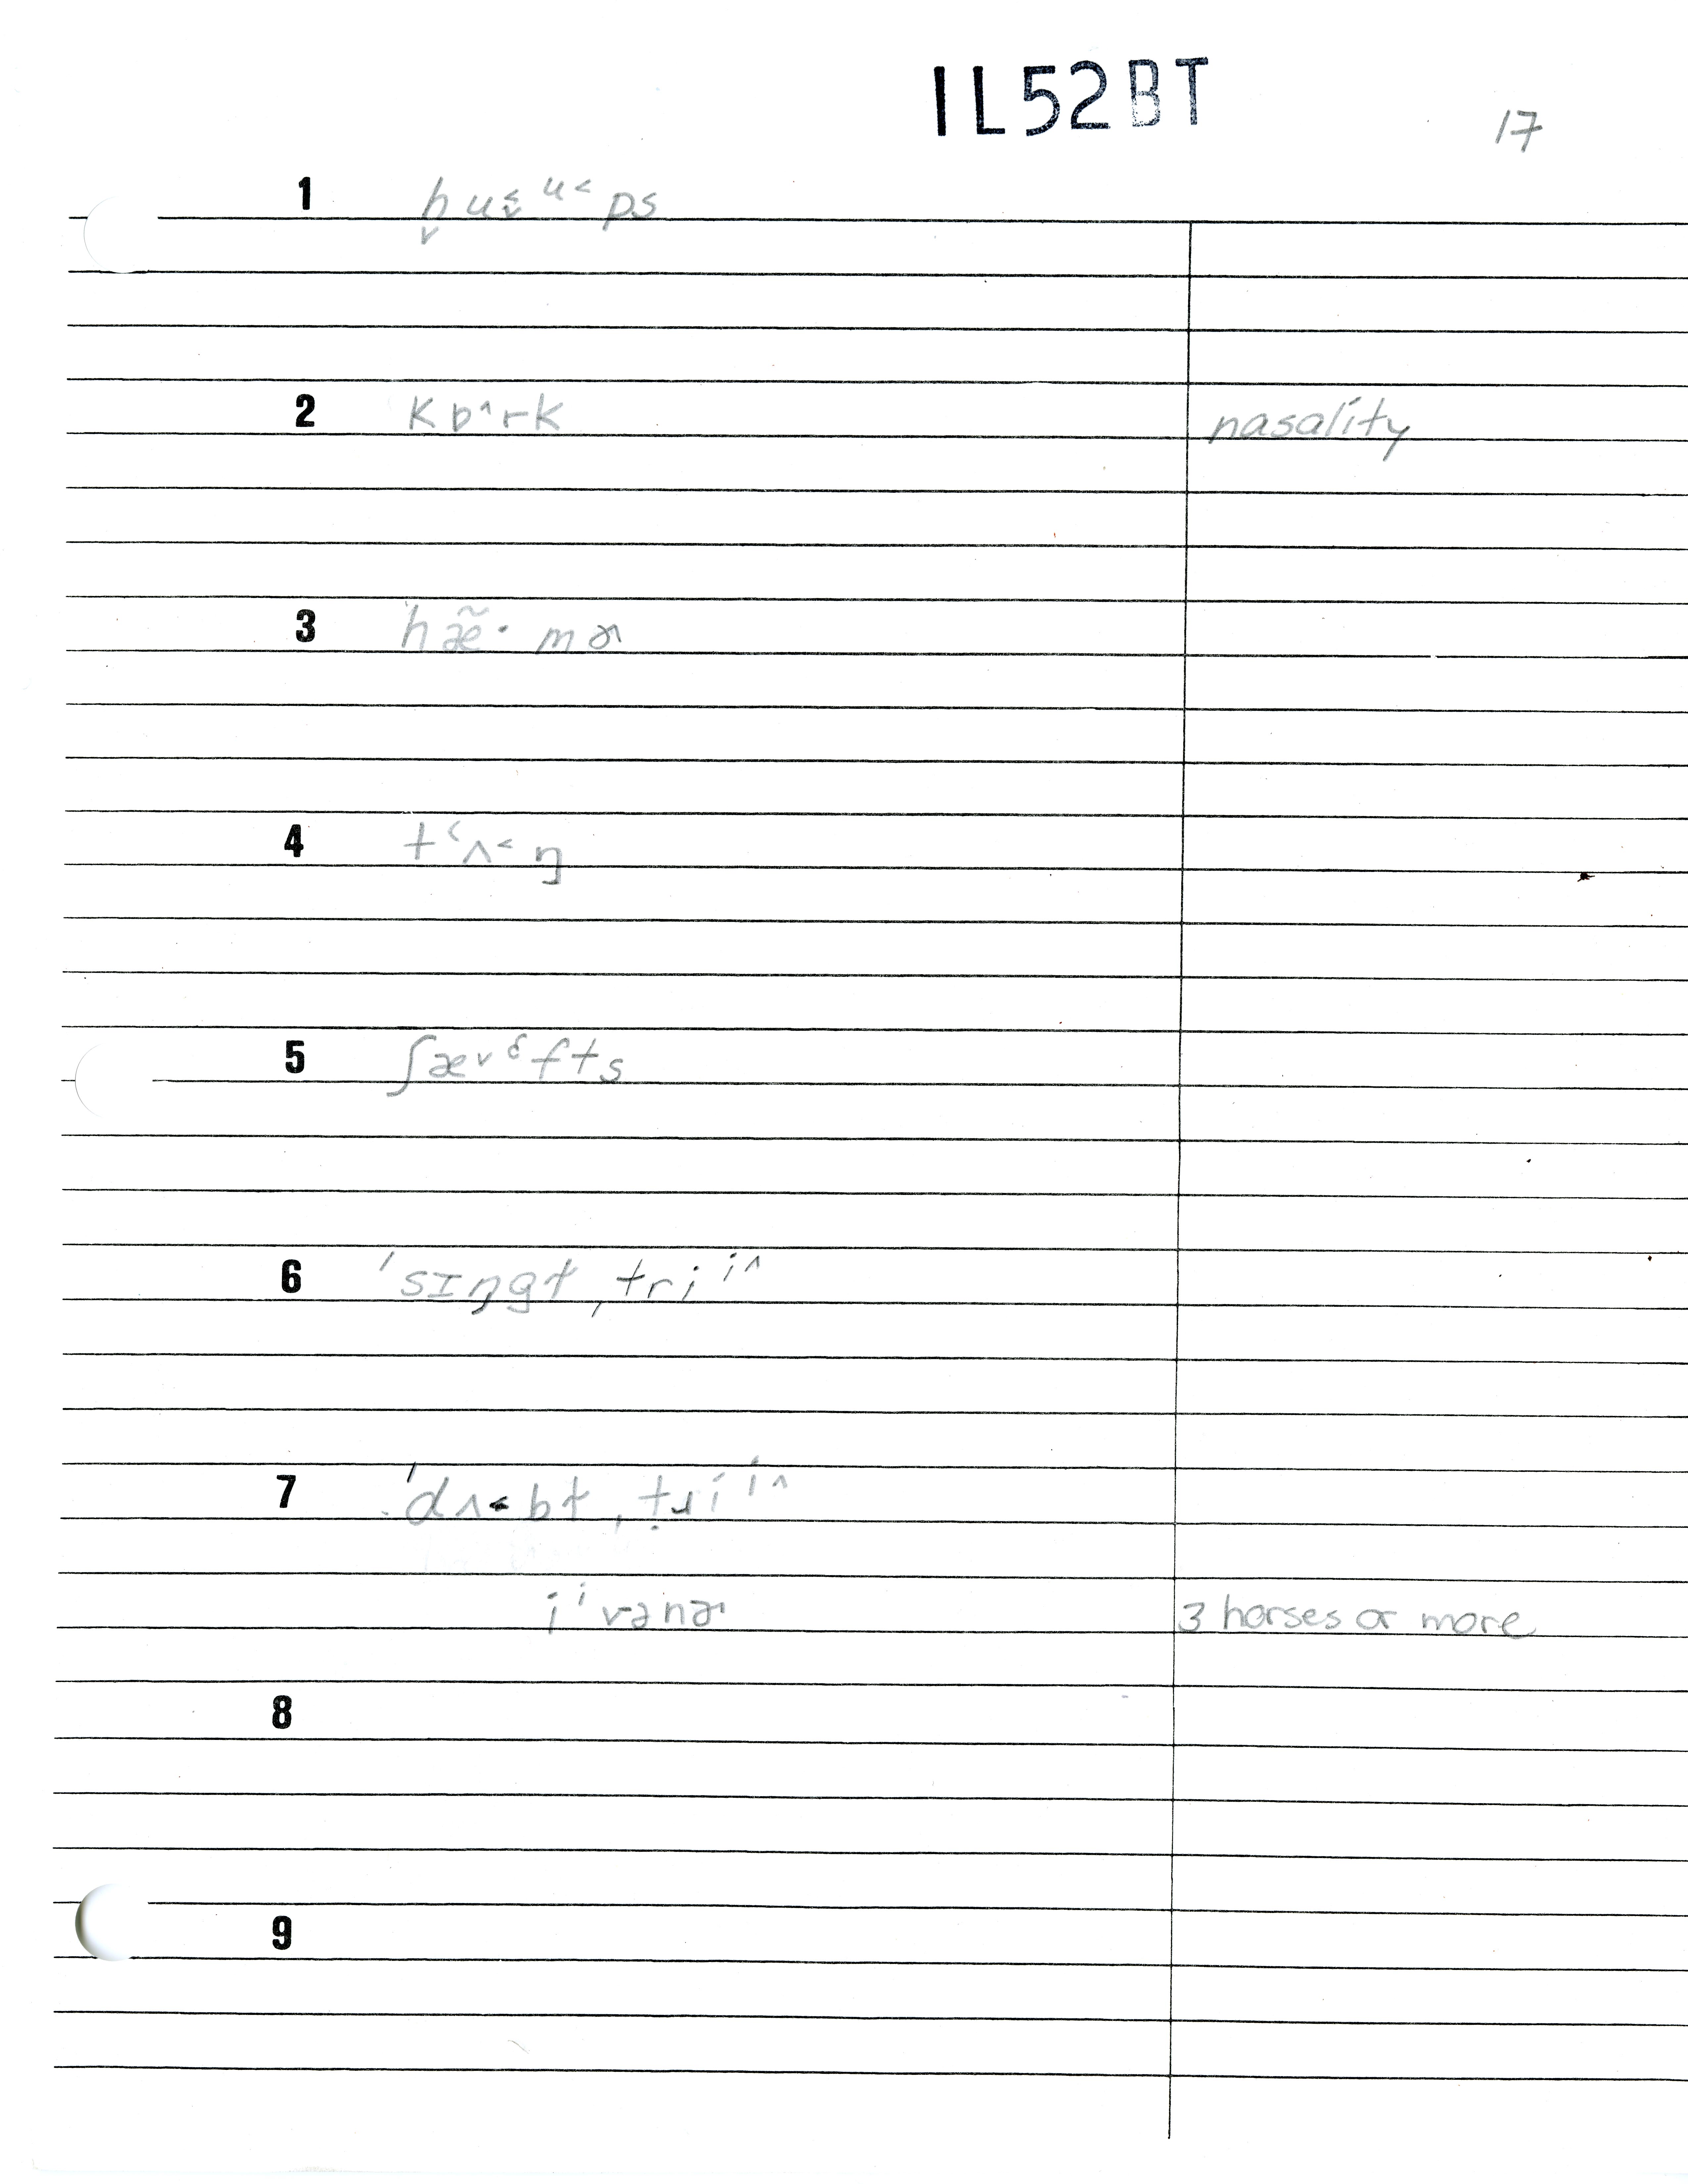 IL52BT
17
1 h̬ u˂̬ ᵘ˂ ps
2 kɒ˄rk
nasality
3 hæ̃· mɚ
4 t˂ʌ˂ŋ
5 ʃæ˅ᵋfts
6 ˈsɪŋgɫ ˌtriⁱ˄
7 ˈdʌ˂bɫ ˌtɹ̣iⁱ˄
iⁱvənɚ
3 horses or more
8
9